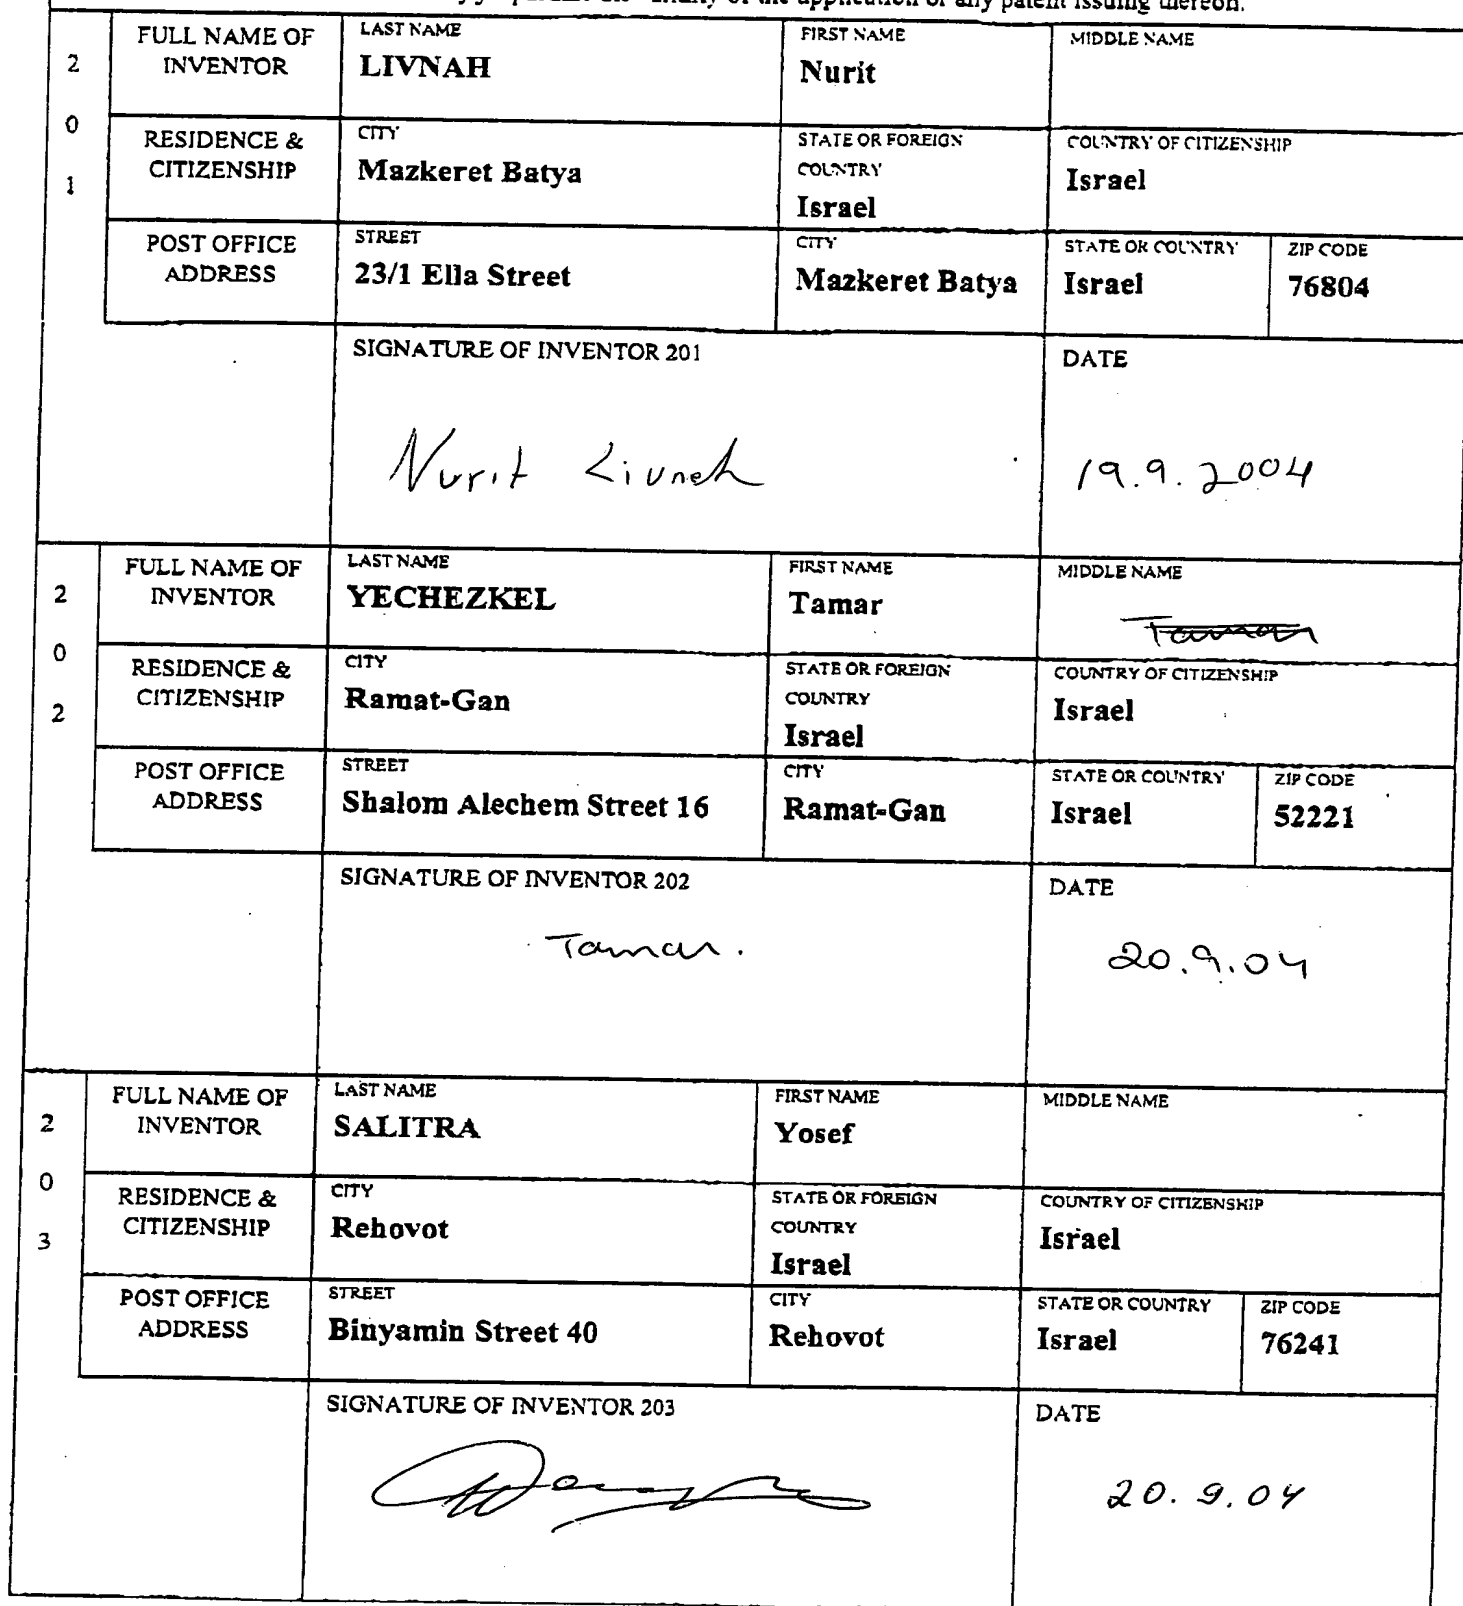 of the application or any patent issuing thereon.
2 0 1
FULL NAME OF INVENTOR
LAST NAME
LIVNAH
FIRST NAME
Nurit
MIDDLE NAME
RESIDENCE & CITIZENSHIP
CITY
Mazkeret Batya
STATE OR FOREIGN COUNTRY
Israel
COUNTRY OF CITIZENSHIP
Israel
POST OFFICE ADDRESS
STREET
23/1 Ella Street
CITY
Mazkeret Batya
STATE OR COUNTRY
Israel
ZIP CODE
76804
SIGNATURE OF INVENTOR 201
Nurit Livneh
DATE
19.9.2004
2 0 2
FULL NAME OF INVENTOR
LAST NAME
YECHEZKEL
FIRST NAME
Tamar
MIDDLE NAME
Tamar
RESIDENCE & CITIZENSHIP
CITY
Ramat-Gan
STATE OR FOREIGN COUNTRY
Israel
COUNTRY OF CITIZENSHIP
Israel
POST OFFICE ADDRESS
STREET
Shalom Alechem Street 16
CITY
Ramat-Gan
STATE OR COUNTRY
Israel
ZIP CODE
52221
SIGNATURE OF INVENTOR 202
Tamar.
DATE
20.9.04
2 0 3
FULL NAME OF INVENTOR
LAST NAME
SALITRA
FIRST NAME
Yosef
MIDDLE NAME
RESIDENCE & CITIZENSHIP
CITY
Rehovot
STATE OR FOREIGN COUNTRY
Israel
COUNTRY OF CITIZENSHIP
Israel
POST OFFICE ADDRESS
STREET
Binyamin Street 40
CITY
Rehovot
STATE OR COUNTRY
Israel
ZIP CODE
76241
SIGNATURE OF INVENTOR 203
DATE
20.9.04